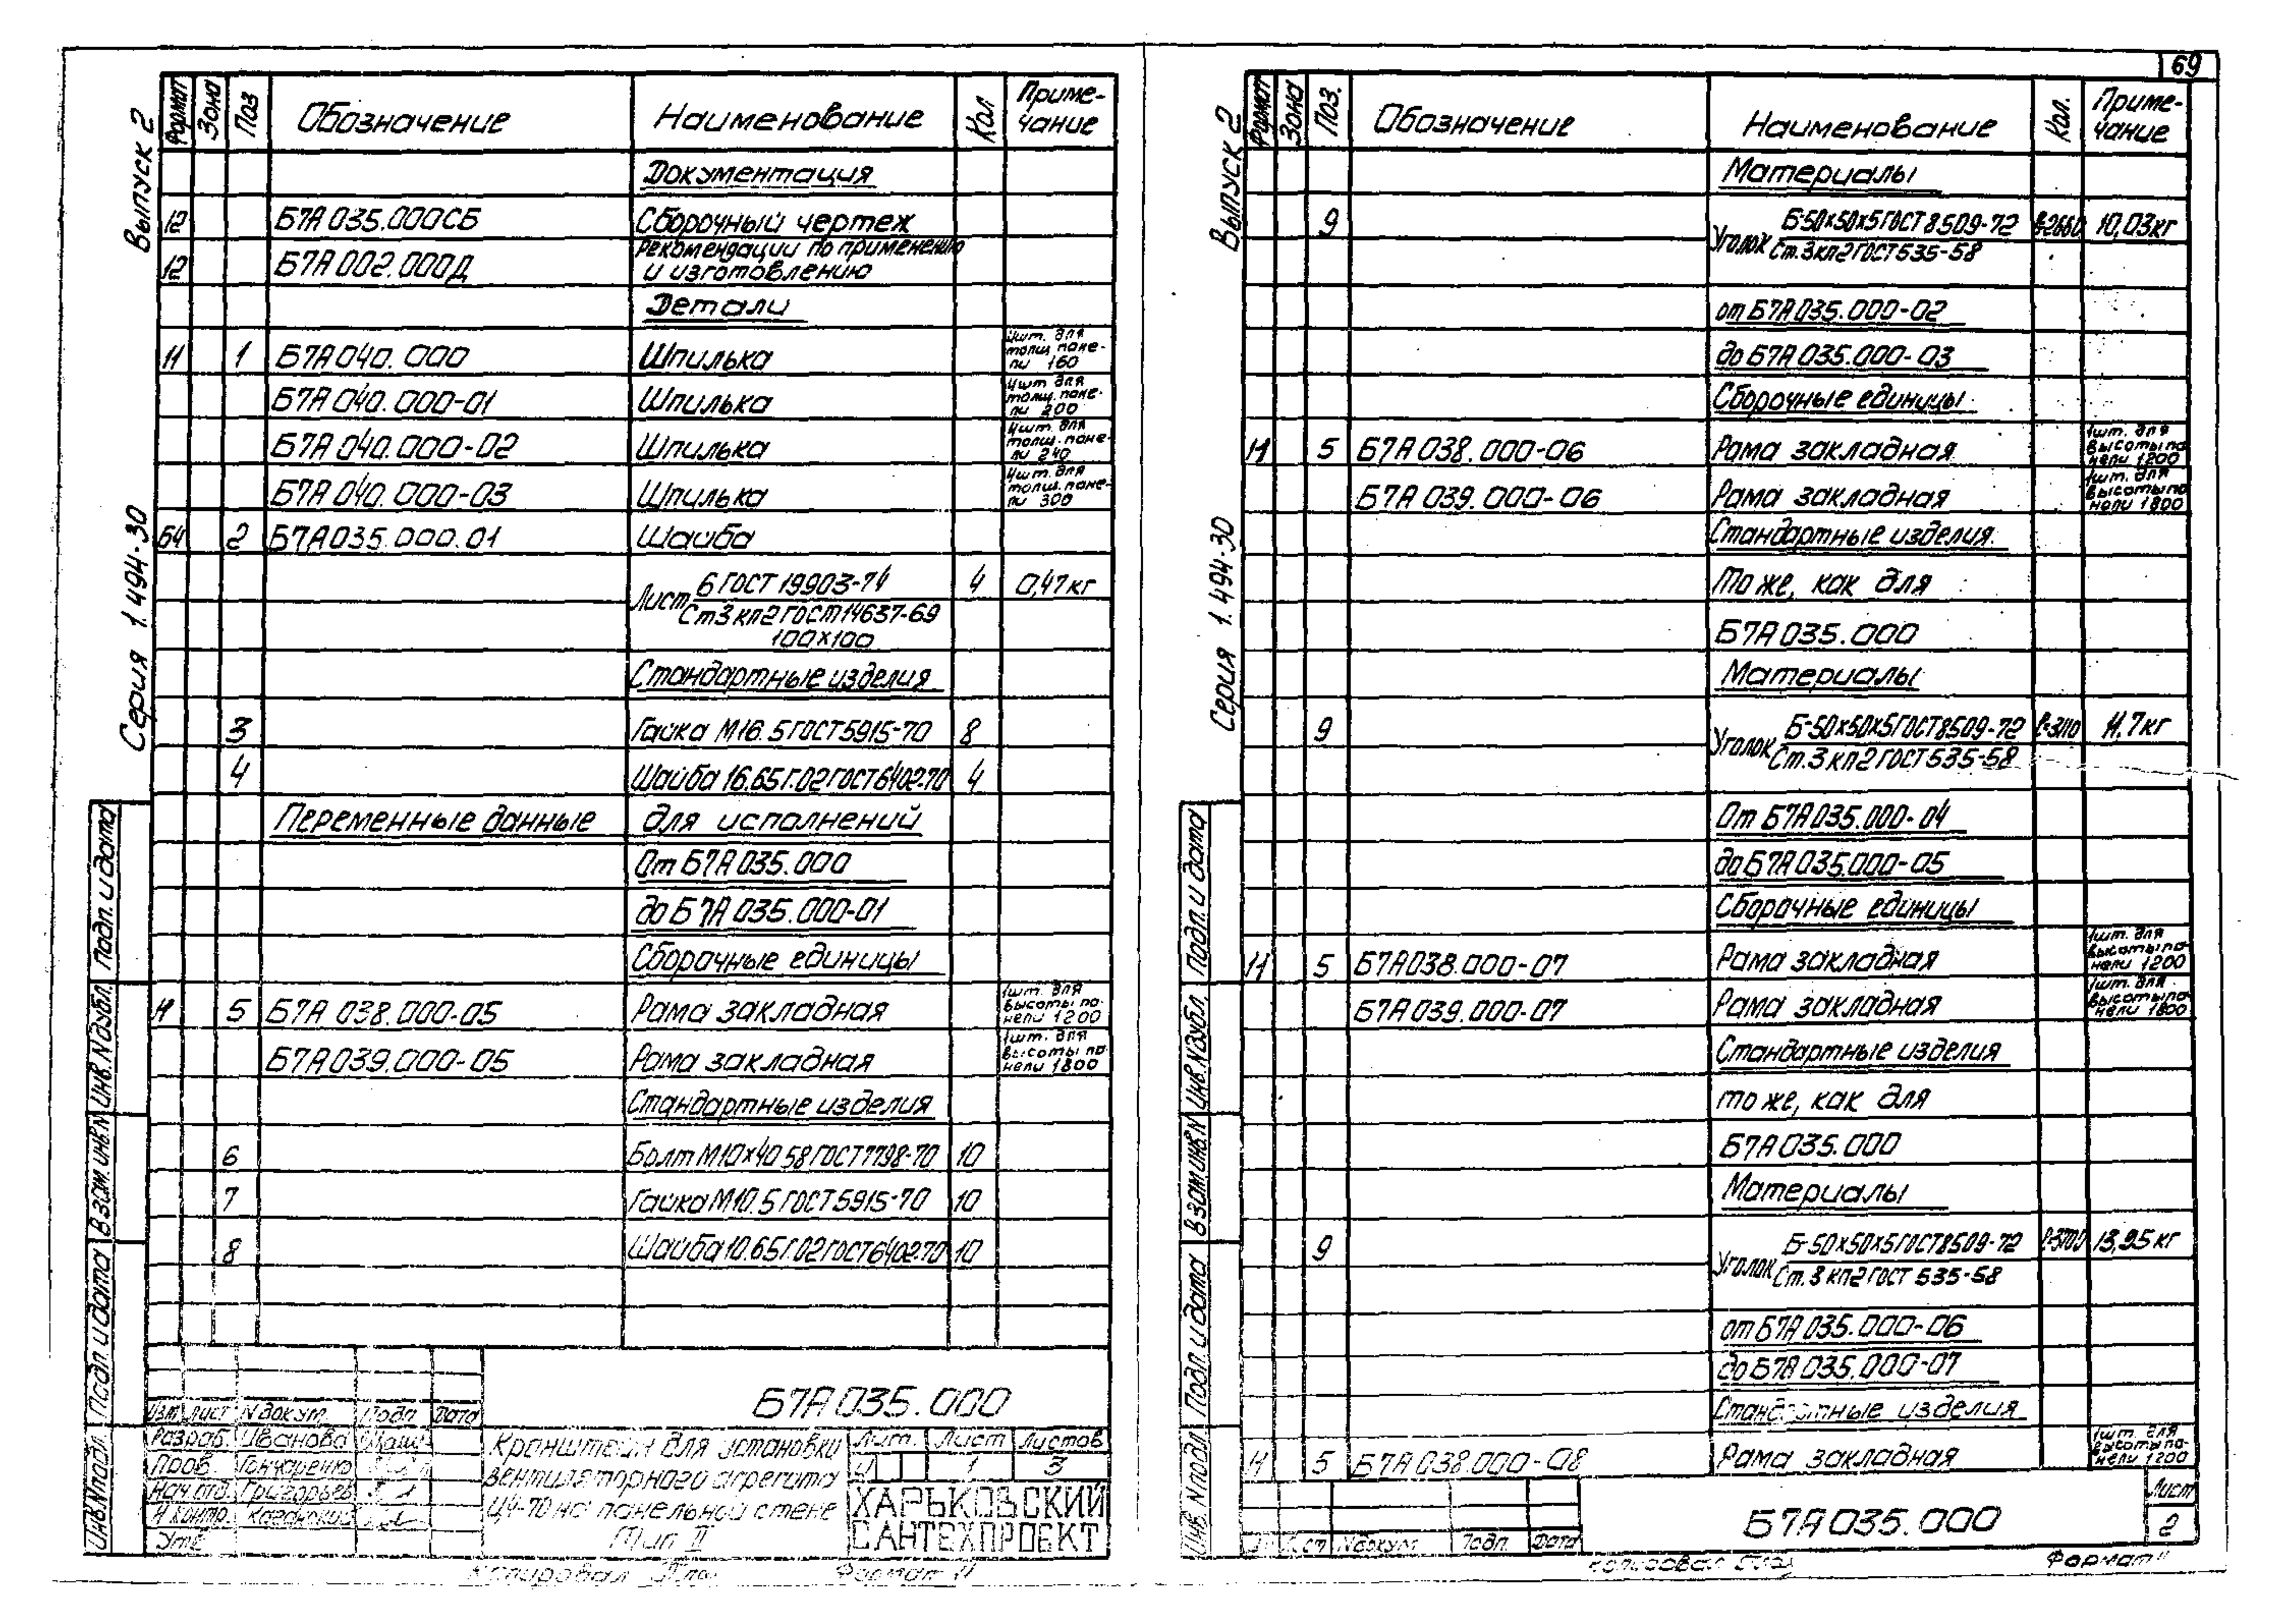 69
Выпуск 2
Серия 1.494-30
Формат Зона Поз Обозначение Наименование Кол Приме-
чание
Документация
12 Б7А035.000СБ Сборочный чертеж
12 Б7А002.000Д Рекомендации по применению
и изготовлению
Детали
11 1 Б7А040.000 Шпилька 4шт. для
толщ. пане-
ли 160
Б7А040.000-01 Шпилька 4шт. для
толщ. пане-
ли 200
Б7А040.000-02 Шпилька 4шт. для
толщ. пане-
ли 240
Б7А040.000-03 Шпилька 4шт. для
толщ. пане-
ли 300
Б4 2 Б7А035.000.01 Шайба
Лист 6 ГОСТ 19903-74 4 0,47кг
Ст3кп2 ГОСТ 14637-69
100х100
Стандартные изделия
3 Гайка М16.5 ГОСТ 5915-70 8
4 Шайба 16.65Г.02 ГОСТ 6402-70 4
Переменные данные для исполнений
От Б7А035.000
до Б7А035.000-01
Сборочные единицы
11 5 Б7А038.000-05 Рама закладная 1шт. для
высоты па-
нели 1200
Б7А039.000-05 Рама закладная 1шт. для
высоты па-
нели 1800
Стандартные изделия
6 Болт М10х40 58 ГОСТ 7798-70 10
7 Гайка М10.5 ГОСТ 5915-70 10
8 Шайба 10.65Г.02 ГОСТ 6402-70 10
Б7А035.000
Изм Лист N докум. Подп Дата
Разраб. Иванова
Пров Гончаренко
Нач.отд. Григорьев
Н.контр. Казанский
Утв
Кронштейн для установки
вентиляторного агрегата
Ц4-70 на панельной стене
Тип II
Лит. Лист Листов
1 3
ХАРЬКОВСКИЙ
САНТЕХПРОЕКТ
Копировал Формат 11
Инв.N подл. Подп. и дата Взам.инв.N Инв.N дубл. Подп. и дата
Выпуск 2
Серия 1.494-30
Формат Зона Поз. Обозначение Наименование Кол. Приме-
чание
Материалы
9 Уголок Б-50х50х5 ГОСТ 8509-72 ℓ=2660 10,03кг
Ст.3кп2 ГОСТ 535-58
от Б7А035.000-02
до Б7А035.000-03
Сборочные единицы
11 5 Б7А038.000-06 Рама закладная 1шт. для
высоты па-
нели 1200
Б7А039.000-06 Рама закладная 1шт. для
высоты па-
нели 1800
Стандартные изделия
То же, как для
Б7А035.000
Материалы
9 Уголок Б-50х50х5 ГОСТ 8509-72 ℓ=3110 11,7кг
Ст.3кп2 ГОСТ 535-58
От Б7А035.000-04
до Б7А035.000-05
Сборочные единицы
11 5 Б7А038.000-07 Рама закладная 1шт. для
высоты па-
нели 1200
Б7А039.000-07 Рама закладная 1шт. для
высоты па-
нели 1800
Стандартные изделия
то же, как для
Б7А035.000
Материалы
9 Уголок Б-50х50х5 ГОСТ 8509-72 ℓ=3700 13,95кг
Ст.3кп2 ГОСТ 535-58
от Б7А035.000-06
до Б7А035.000-07
Стандартные изделия
11 5 Б7А038.000-08 Рама закладная 1шт. для
высоты па-
нели 1200
Б7А035.000
Лист
2
N докум. Подп. Дата
Копировал Формат 11
Инв.N подл. Подп. и дата Взам.инв.N Инв.N дубл. Подп. и дата